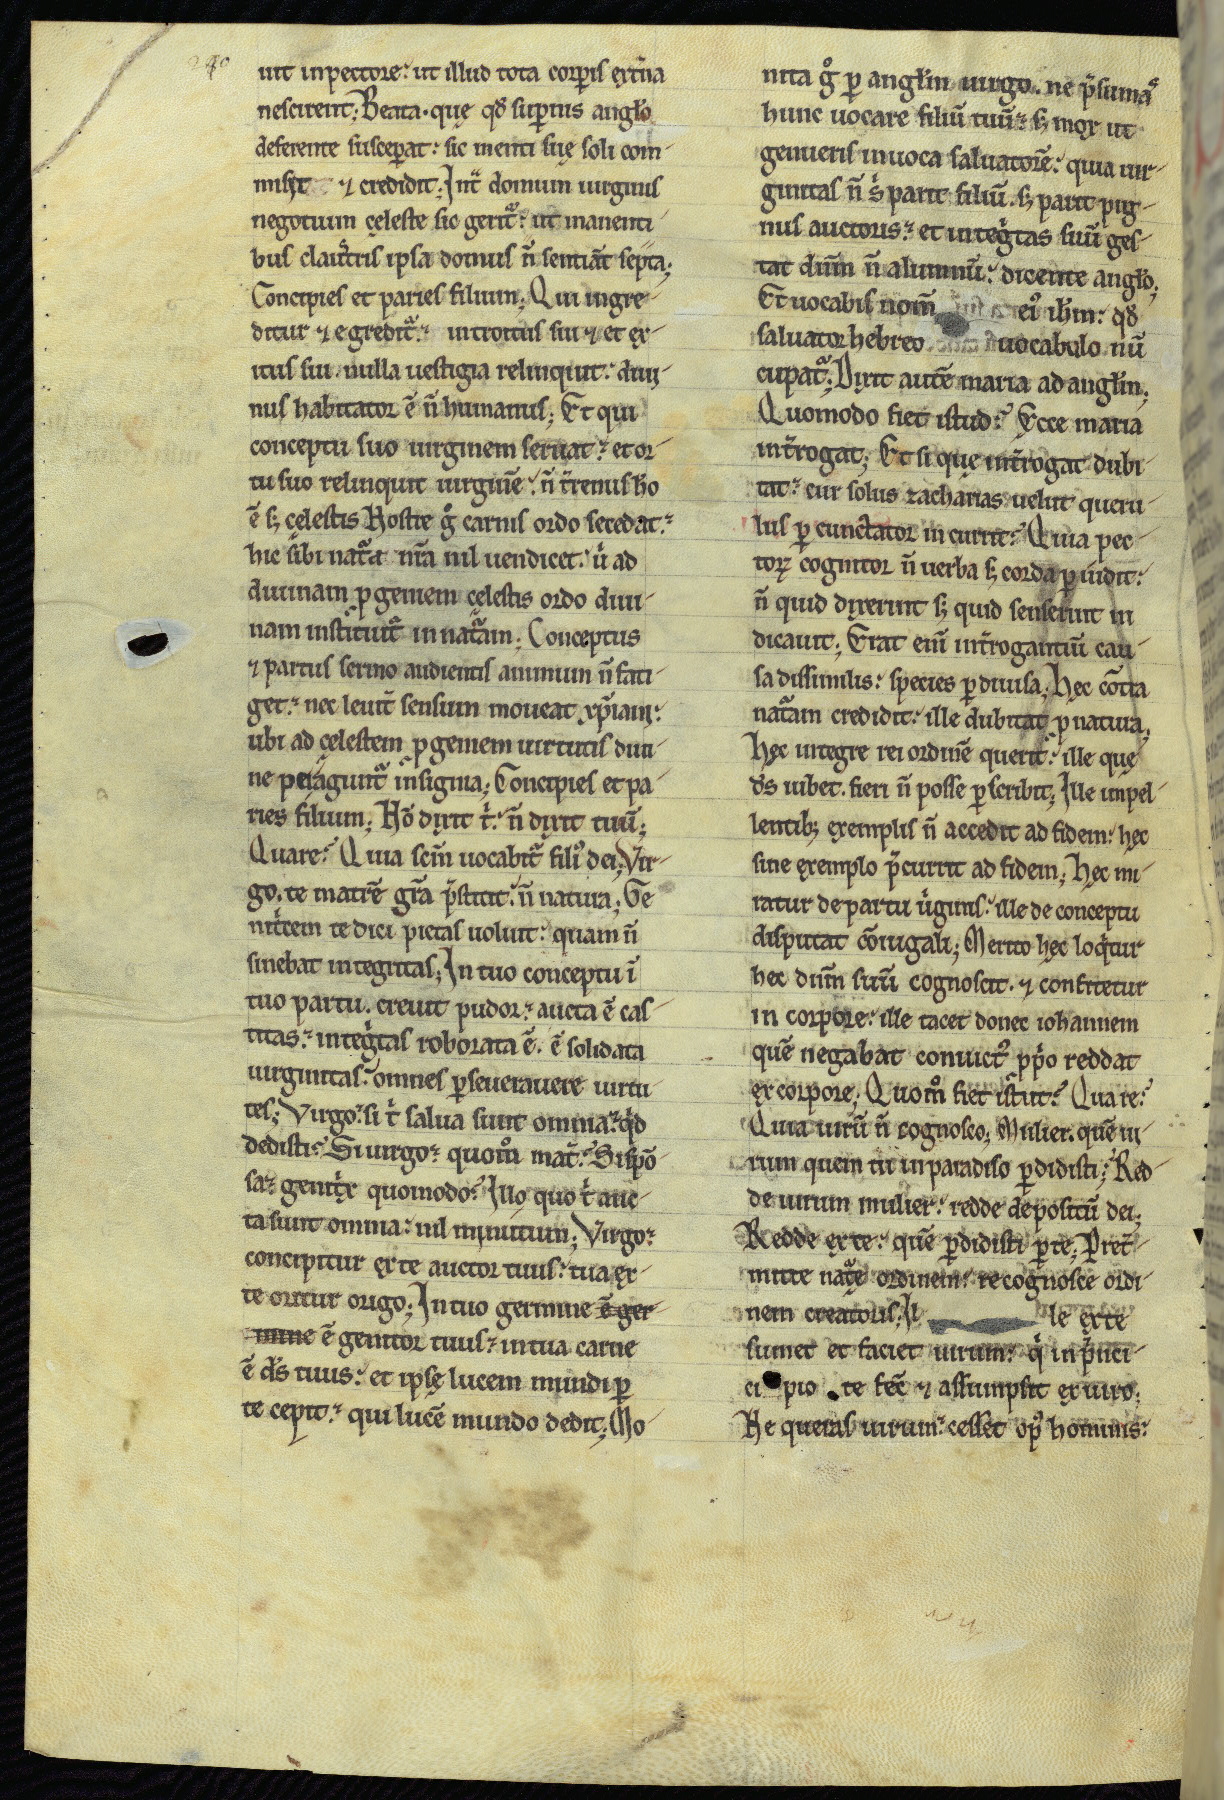 uit in pectore: ut illud tota corp̄is ext̄na
nescirent; Beata. quę qd̄ supernus angl̄o
deferente suscep̄at: sic menti suę soli com-
misit ⁊ credidit; Int̄ domum uirginis
negotium cęleste sic gerit᷑: ut manenti
bus claustris ipsa domus n̄ sentiāt septa;
Concipies et paries filium; Qui ingre-
ditur ⁊ egredit᷑: introitus sui ⁊ et ex-
itus sui nulla uestigia relinquit: diui-
nus habitator ē n̄ humanus; Et qui
conceptu suo uirginem seruat: et or-
tu suo relinquit uirginē: n̄ t̄renus hō
ē sꝫ cęlestis Nostrę g̊ carnis ordo secedat:
hic sibi nat᷑a nr̄a nil uendicet: ů ad
diuinam ꝓgeniem cęlestis ordo diui-
nam instituit in nat᷑am; Conceptus
⁊ partus sermo audientis animum n̄ fati-
get: nec leuit̄ sensum moueat xp̄iani:
ubi ad cęlestem ꝓgeniem uirtutis diui-
ne peragunt᷑ insignia; Concipies et pa-
ries filium; Nō dixit t: n̄ dixit tuū;
Quare: Quia sc̄m uocabit᷑ filī dei; Vir-
go. te matrē gr̄a p̄stitit: n̄ natura; Ge
nitᷓcem te dici pietas uoluit: quam n̄
sinebat integritas; In tuo conceptu ī
tuo partu. creuit pudor: aucta ē cas-
titas: integritas roborata ē. ē solidata
uirginitas: omnes ꝑseuerauere uirtu
tes; Virgo: si t salua sunt omnia: qd
dedisti: Si uirgo: quom̊ mat̄: Si spō
sa: genitᷓx quomodo: Illo quo t auc-
ta sunt omnia: nil minutum; Virgo:
concipitur ex te auctor tuus: tua ex-
te oritur origo; In tuo germine ē ger-
mine ē genitor tuus: in tua carne
ē d̄s tuus: et ipsę lucem mundi ꝑ
te cepit: qui lucē mundo dedit; Mo-
nita g̊ ꝑ angl̄m uirgo. ne p̄sumas
hunc uocare filiū tuū: sꝫ mox ut
genueris inuoca saluatorē: quia uir-
ginitas n̄ s̄ parit filiū. sꝫ parit pig-
nus auctoris: et integ̊tas suū ges-
tat dn̄m n̄ alumnū: dicente angl̄o;
Et uocabis nom̄ ei᷒ ih̄m: qd̄
saluator hebreo uocabulo nū
cupat᷑; Dixit autē maria ad angl̄m;
Quomodo fiet istud: Ecce maria
int̄rogat; Et si quę int̄rogat dubi
tat: cur solus zacharias uelut queru-
lus ꝑcunctator incurrit: Quia pec-
toꝝ cognitor n̄ uerba sꝫ corda ꝑuidit:
n̄ quid dixerint sꝫ quid senserint in
dicauit; Erat enī int̄rogantiū cau-
sa dissimilis: species ꝑdiuisa; Hęc cōtra
nat᷑am credidit: ille dubitat ꝓ natura,
Hęc integre rei ordinē querit: ille quę
d̄s iubet. fieri n̄ posse ꝑscribit; Ille impel-
lentibꝫ exemplis n̄ accedit ad fidem: hęc
sine exemplo p̄currit ad fidem; Hęc mi-
ratur de partu ůginis: ille de conceptu
disputat cōiugali; Merito hęc loqᷓtur
hec dn̄m suū cognoscit. ⁊ confitetur
in corpore: ille tacet donec iohannem
quē negabat conuict᷒ ꝓpᷓo reddat
ex corpore; Quom̊ fiet istut: Quare:
Quia uirū n̄ cognosco; Mulier. quē ui-
rum quem tu in paradiso ꝑdidisti; Red-
de uirum mulier: redde depositū dei;
Redde ex te: quē ꝑdidisti ꝑ te; Pret̄
mitte nat᷑ę ordinem: recognosce ordi-
nem creatoris; Il le ex te
sumet et faciet uirum: qᷓ in pᷓnci-
ci pio te fec̄ ⁊ assumpsit ex uiro;
Ne queras uirum: cesset op᷒ hominis: